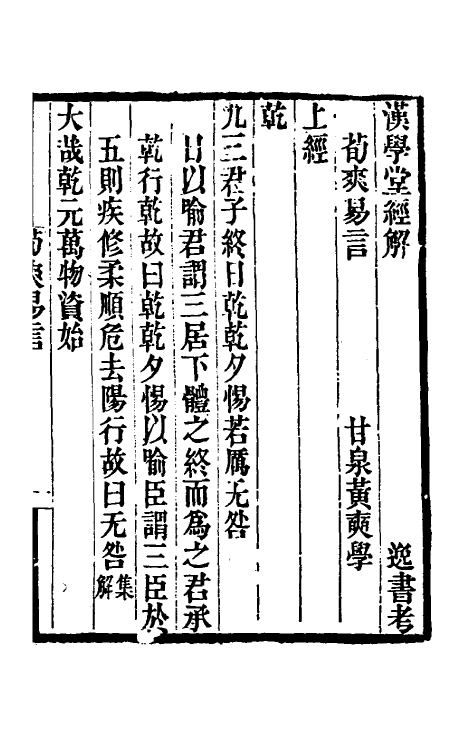 漢學堂經解　逸書考
荀爽易言　甘泉黃奭學
上經
乾
九三君子終日乾乾夕惕若厲无咎
日以喻君謂三居下體之終而爲之君承
乾行乾故曰乾乾夕惕以喻臣謂三臣於
五則疾修柔順危去陽行故曰无咎集解
大哉乾元萬物資始
荀爽易言　一